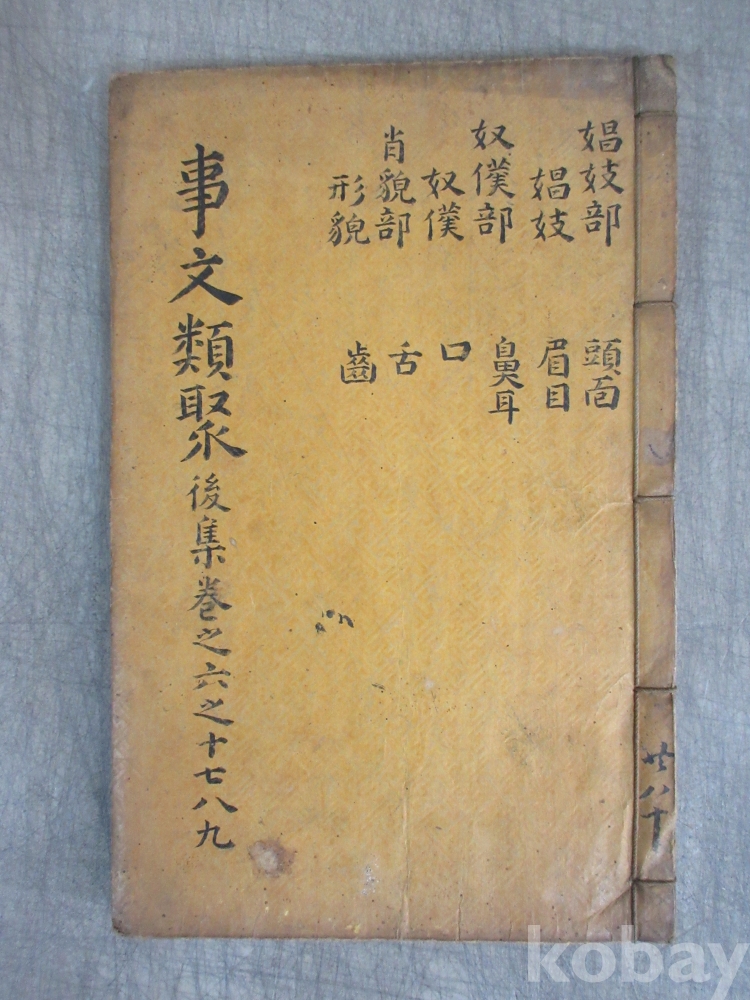 娼妓部
娼妓
奴僕部
奴僕
肖貌部
形貌
頭面
眉目
鼻耳
口
舌
齒
事文類聚後集卷之六之十七八九
共八十
kobay